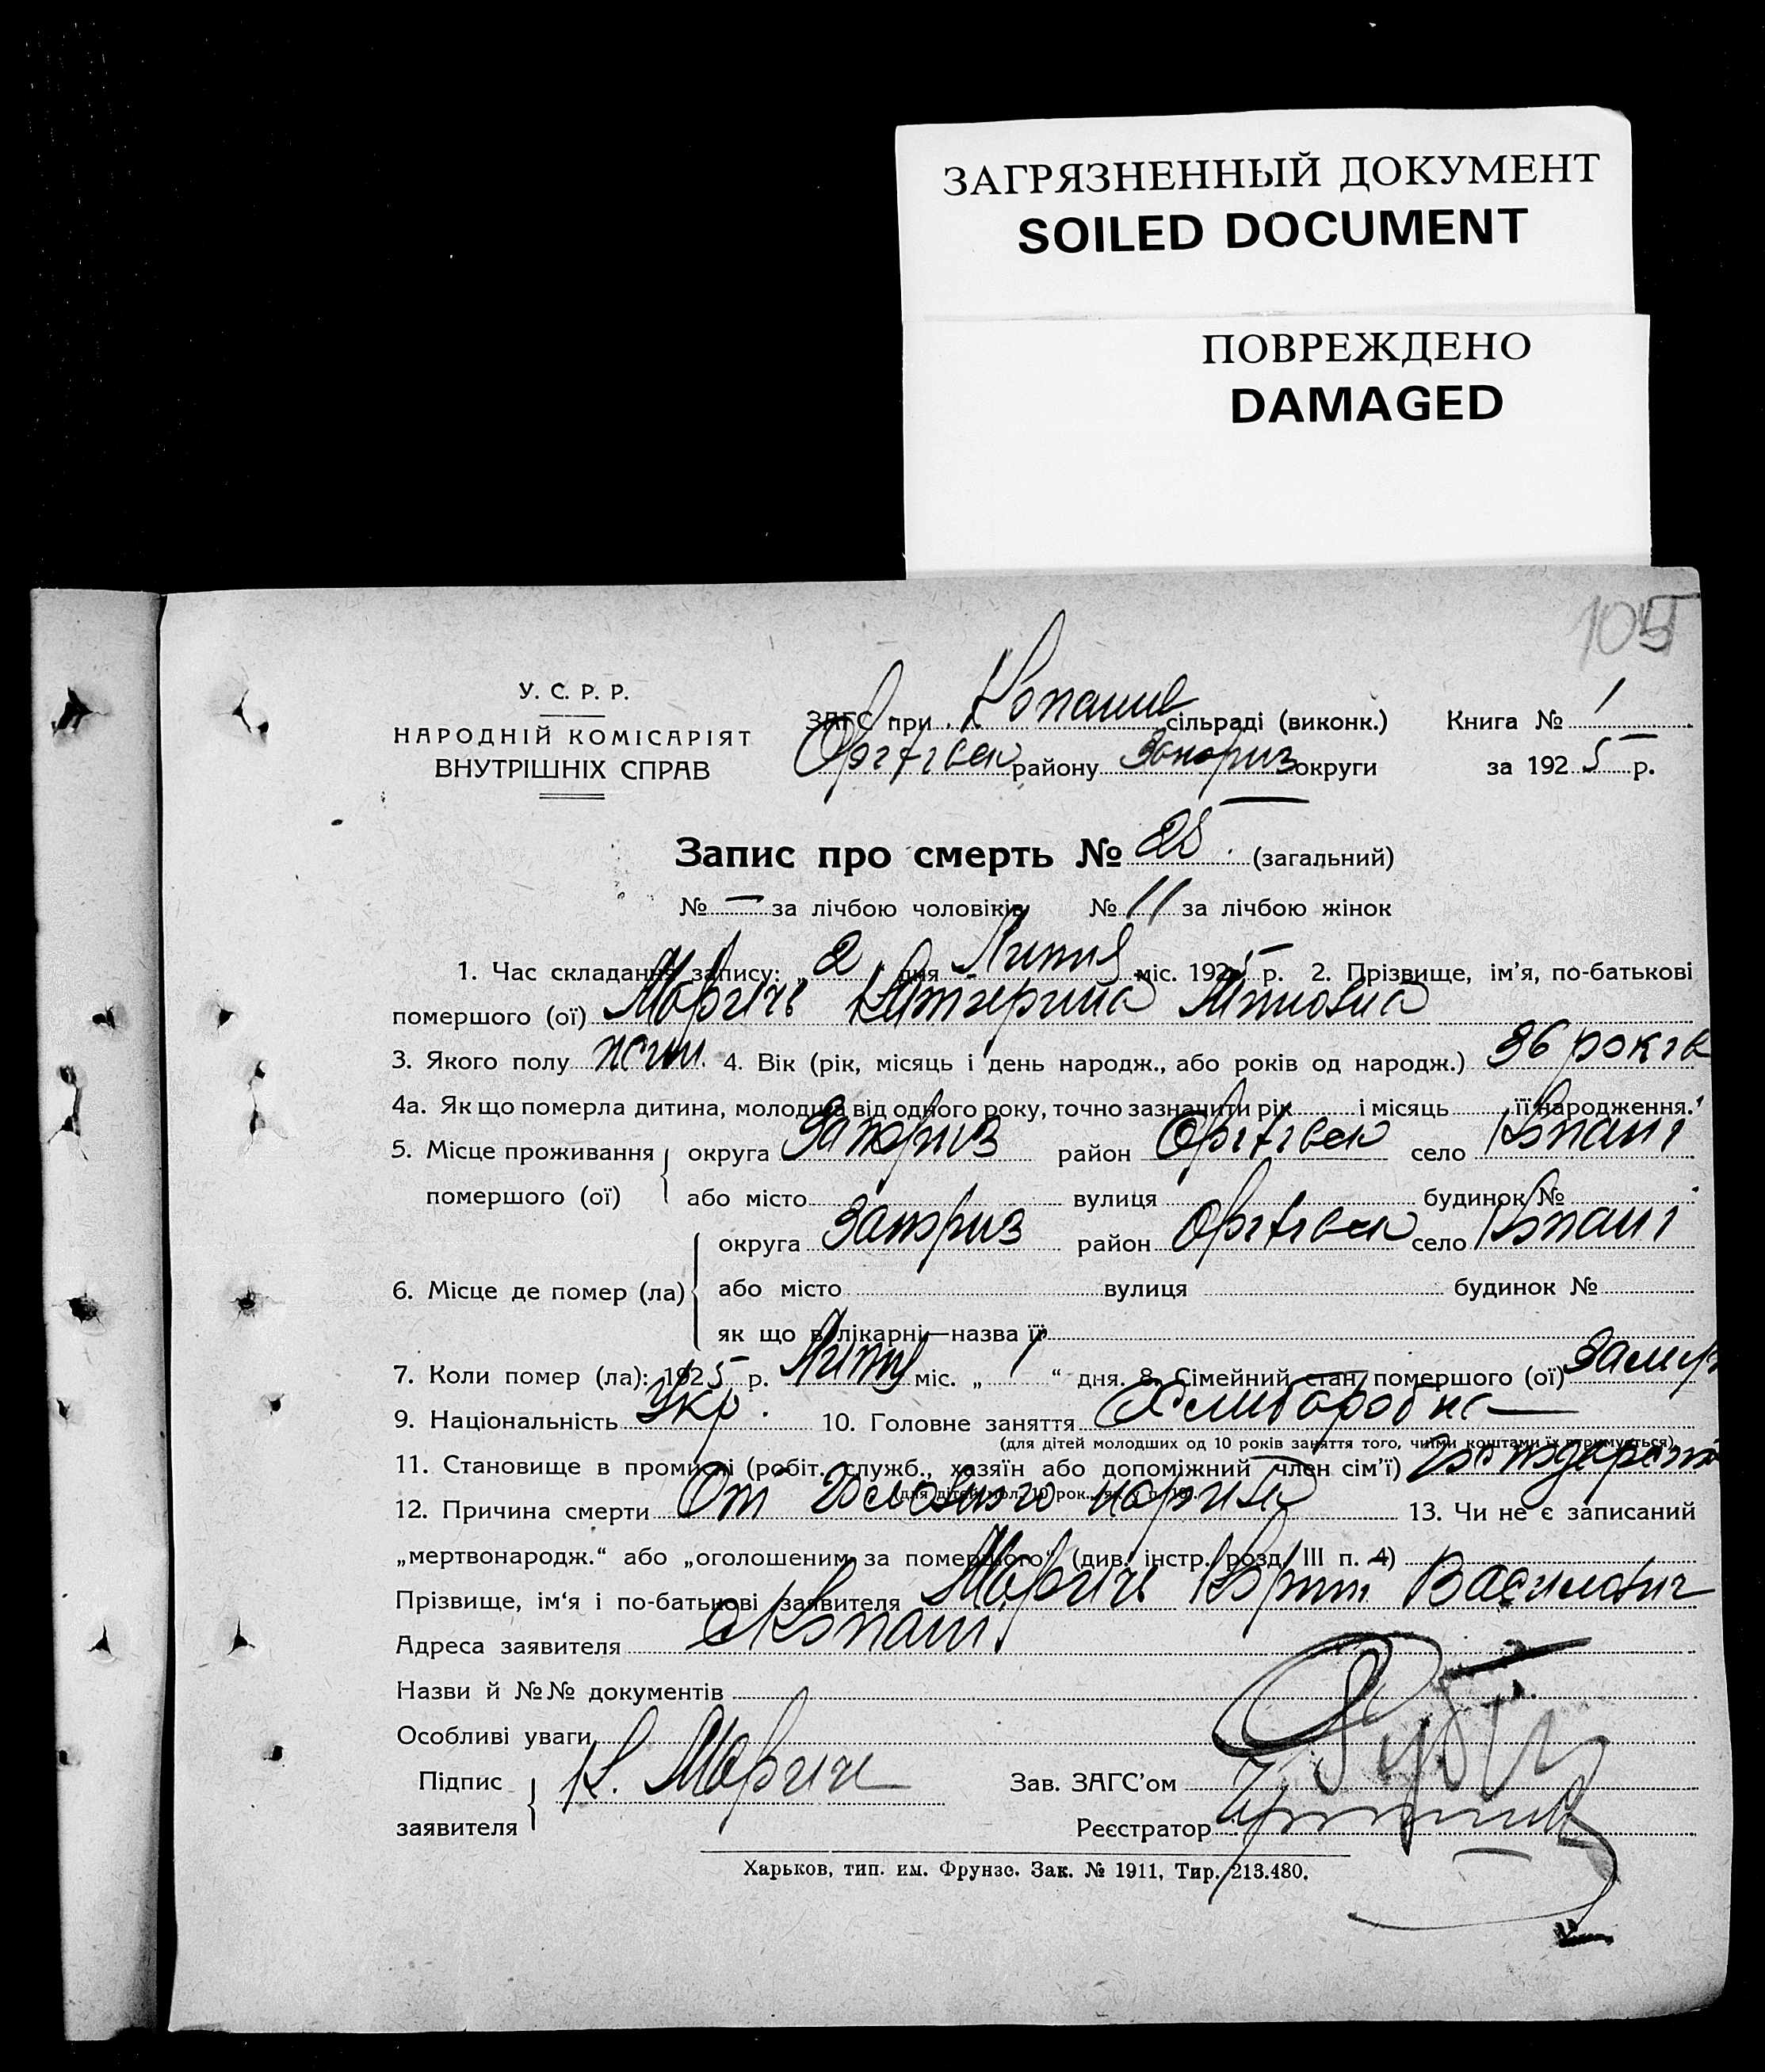 ЗАГРЯЗНЕННЫЙ ДОКУМЕНТ
SOILED DOCUMENT
ПОВРЕЖДЕНО
DAMAGED
105
У. С. Р. Р.
НАРОДНІЙ КОМІСАРІЯТ
ВНУТРІШНІХ СПРАВ
ЗАГС при Копанив сільраді (виконк.) Книга № 1
Оріхівськ району Запориз округи за 1925 р.
Запис про смерть № 25 (загальний)
№ — за лічбою чоловіків № 11 за лічбою жінок
1. Час складання запису: „ 2 дня Липня міс. 1925 р. 2. Прізвище, ім'я, по-батькові
помершого (ої) Катерина
3. Якого полу жін. 4. Вік (рік, місяць і день народж., або років од народж.) 36 років
4а. Як що померла дитина, молодша від одного року, точно зазначити рік і місяць її народження.
5. Місце проживання округа Запориз район Оріхівськ село Копані
помершого (ої) або місто вулиця будинок №
округа Запориз район Оріхівськ село Копані
6. Місце де помер (ла) або місто вулиця будинок №
як що в лікарні—назва її
7. Коли помер (ла): 1925 р. Липня міс. „ 1 “ дня. 8. Сімейний стан помершого (ої) Замуж
9. Національність Укр. 10. Головне заняття Хлиборобка
(для дітей молодших од 10 років заняття того, чиїми коштами їх утримується)
11. Становище в промислі (робіт. служб., хазяїн або допоміжний член сім'ї)
(для дітей мол. 10 рок. як у п. 10).
12. Причина смерти От 13. Чи не є записаний
„мертвонародж.“ або „оголошеним за померлого“ (див. інстр. розд. III п. 4)
Прізвище, ім'я і по-батькові заявителя Василович
Адреса заявителя с Копані
Назви й №№ документів
Особливі уваги
Підпис К. Зав. ЗАГС'ом
заявителя Реєстратор
Харьков, тип. им. Фрунзе. Зак. № 1911, Тир. 213.480.